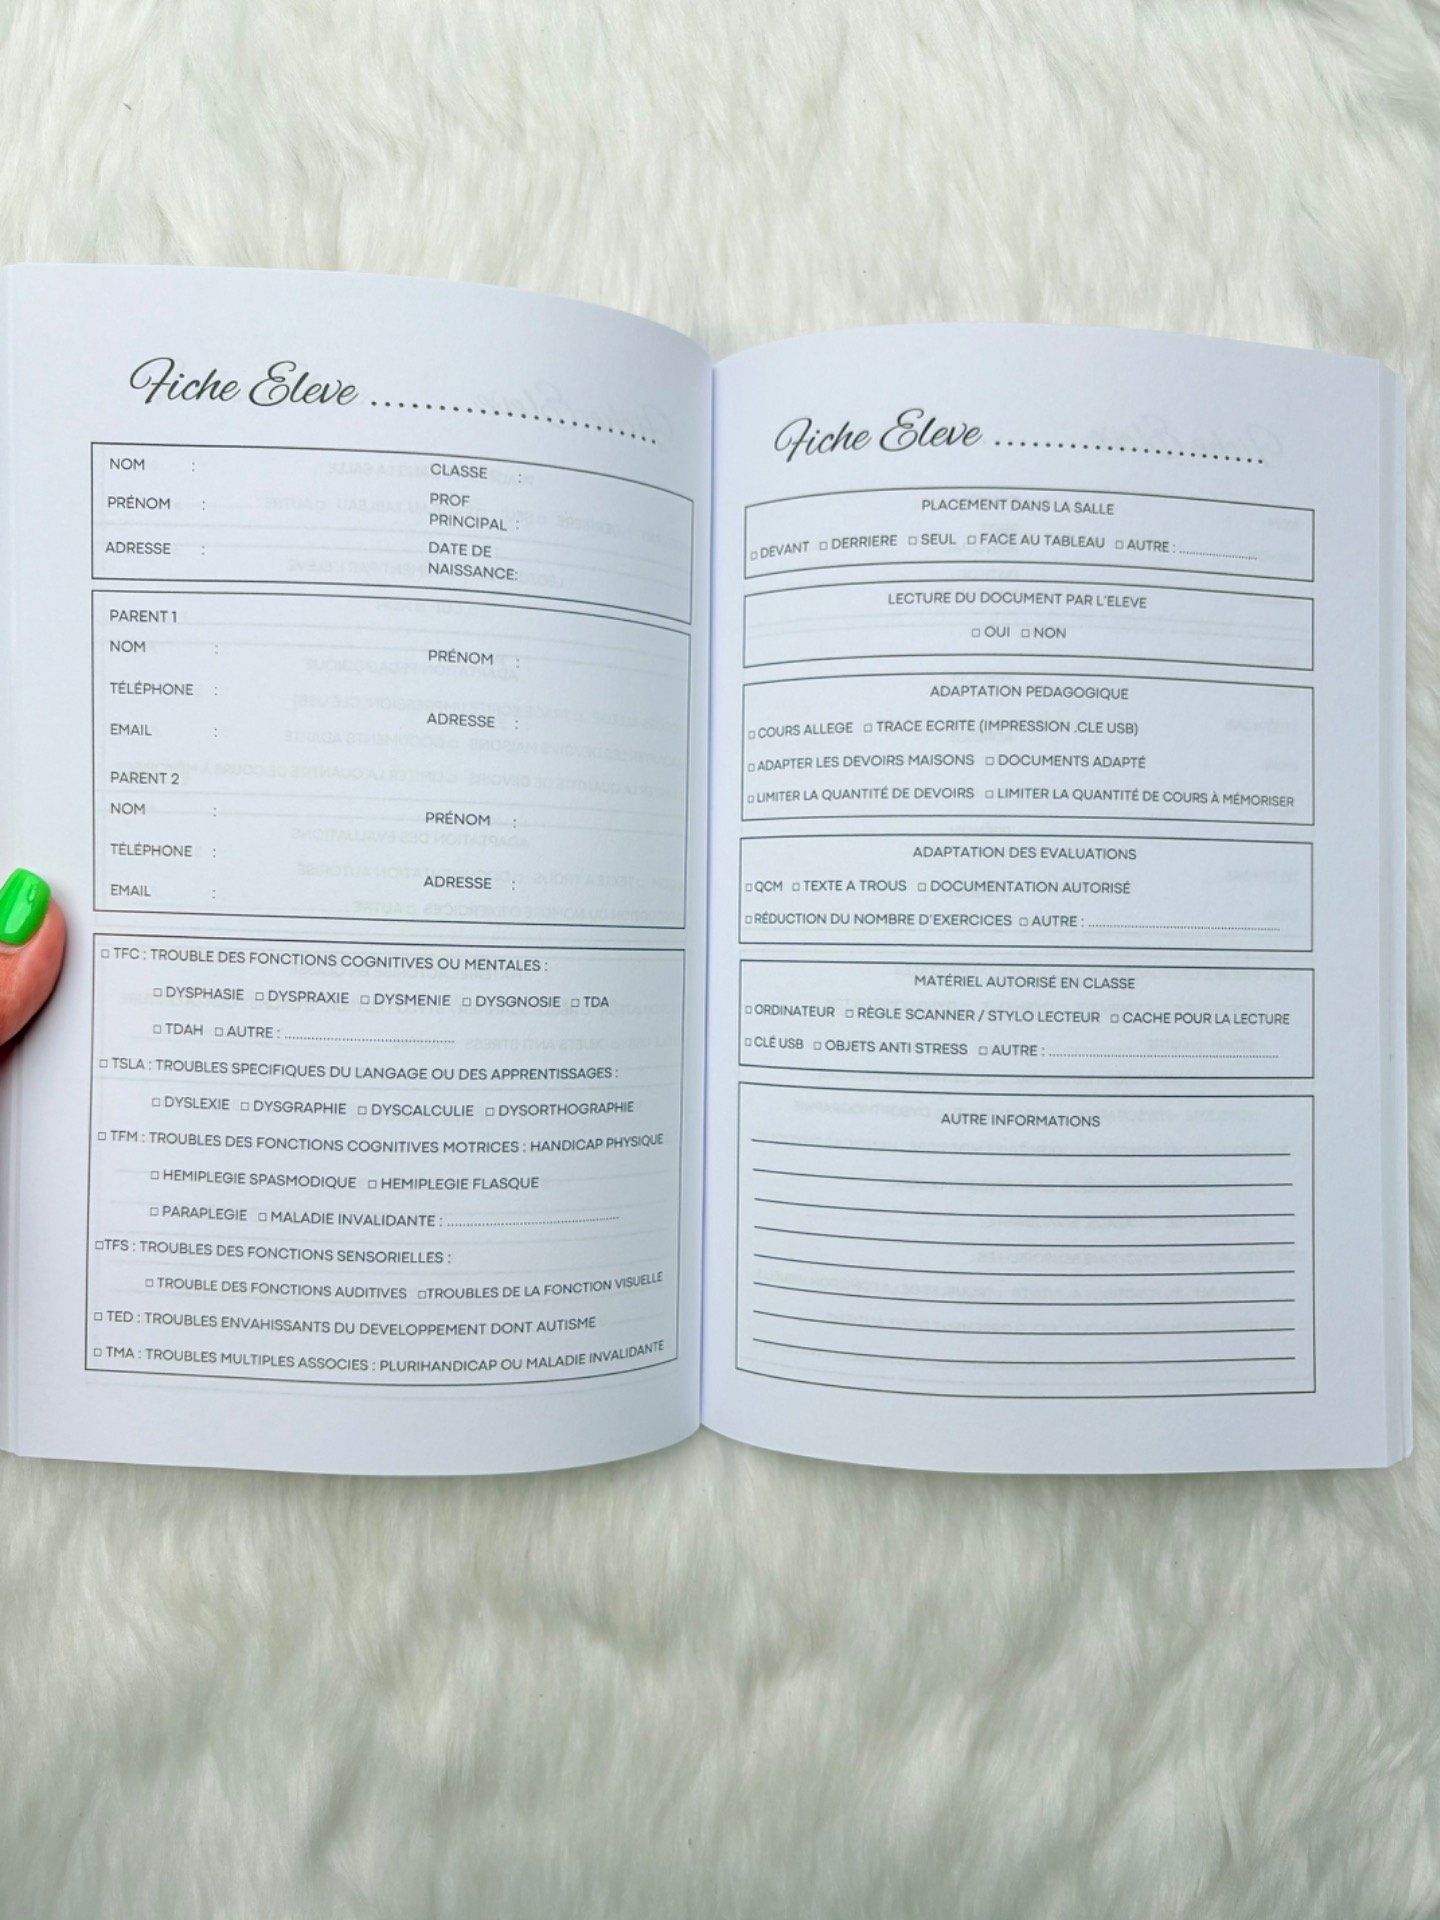 Fiche Eleve ......................
NOM : CLASSE :
PRÉNOM : PROF
PRINCIPAL :
ADRESSE : DATE DE
NAISSANCE:
PARENT 1
NOM : PRÉNOM :
TÉLÉPHONE :
ADRESSE :
EMAIL :
PARENT 2
NOM : PRÉNOM :
TÉLÉPHONE :
ADRESSE :
EMAIL :
□ TFC : TROUBLE DES FONCTIONS COGNITIVES OU MENTALES :
□ DYSPHASIE □ DYSPRAXIE □ DYSMENIE □ DYSGNOSIE □ TDA
□ TDAH □ AUTRE : ..................................
□ TSLA : TROUBLES SPECIFIQUES DU LANGAGE OU DES APPRENTISSAGES :
□ DYSLEXIE □ DYSGRAPHIE □ DYSCALCULIE □ DYSORTHOGRAPHIE
□ TFM : TROUBLES DES FONCTIONS COGNITIVES MOTRICES : HANDICAP PHYSIQUE
□ HEMIPLEGIE SPASMODIQUE □ HEMIPLEGIE FLASQUE
□ PARAPLEGIE □ MALADIE INVALIDANTE : ..................................
□TFS : TROUBLES DES FONCTIONS SENSORIELLES :
□ TROUBLE DES FONCTIONS AUDITIVES □TROUBLES DE LA FONCTION VISUELLE
□ TED : TROUBLES ENVAHISSANTS DU DEVELOPPEMENT DONT AUTISME
□ TMA : TROUBLES MULTIPLES ASSOCIES : PLURIHANDICAP OU MALADIE INVALIDANTE
Fiche Eleve ......................
PLACEMENT DANS LA SALLE
□ DEVANT □ DERRIERE □ SEUL □ FACE AU TABLEAU □ AUTRE : ..................
LECTURE DU DOCUMENT PAR L'ELEVE
□ OUI □ NON
ADAPTATION PEDAGOGIQUE
□ COURS ALLEGE □ TRACE ECRITE (IMPRESSION ,CLE USB)
□ ADAPTER LES DEVOIRS MAISONS □ DOCUMENTS ADAPTÉ
□ LIMITER LA QUANTITÉ DE DEVOIRS □ LIMITER LA QUANTITÉ DE COURS À MÉMORISER
ADAPTATION DES EVALUATIONS
□ QCM □ TEXTE A TROUS □ DOCUMENTATION AUTORISÉ
□ RÉDUCTION DU NOMBRE D'EXERCICES □ AUTRE : ..................................
MATÉRIEL AUTORISÉ EN CLASSE
□ ORDINATEUR □ RÈGLE SCANNER / STYLO LECTEUR □ CACHE POUR LA LECTURE
□ CLÉ USB □ OBJETS ANTI STRESS □ AUTRE : ..................................
AUTRE INFORMATIONS